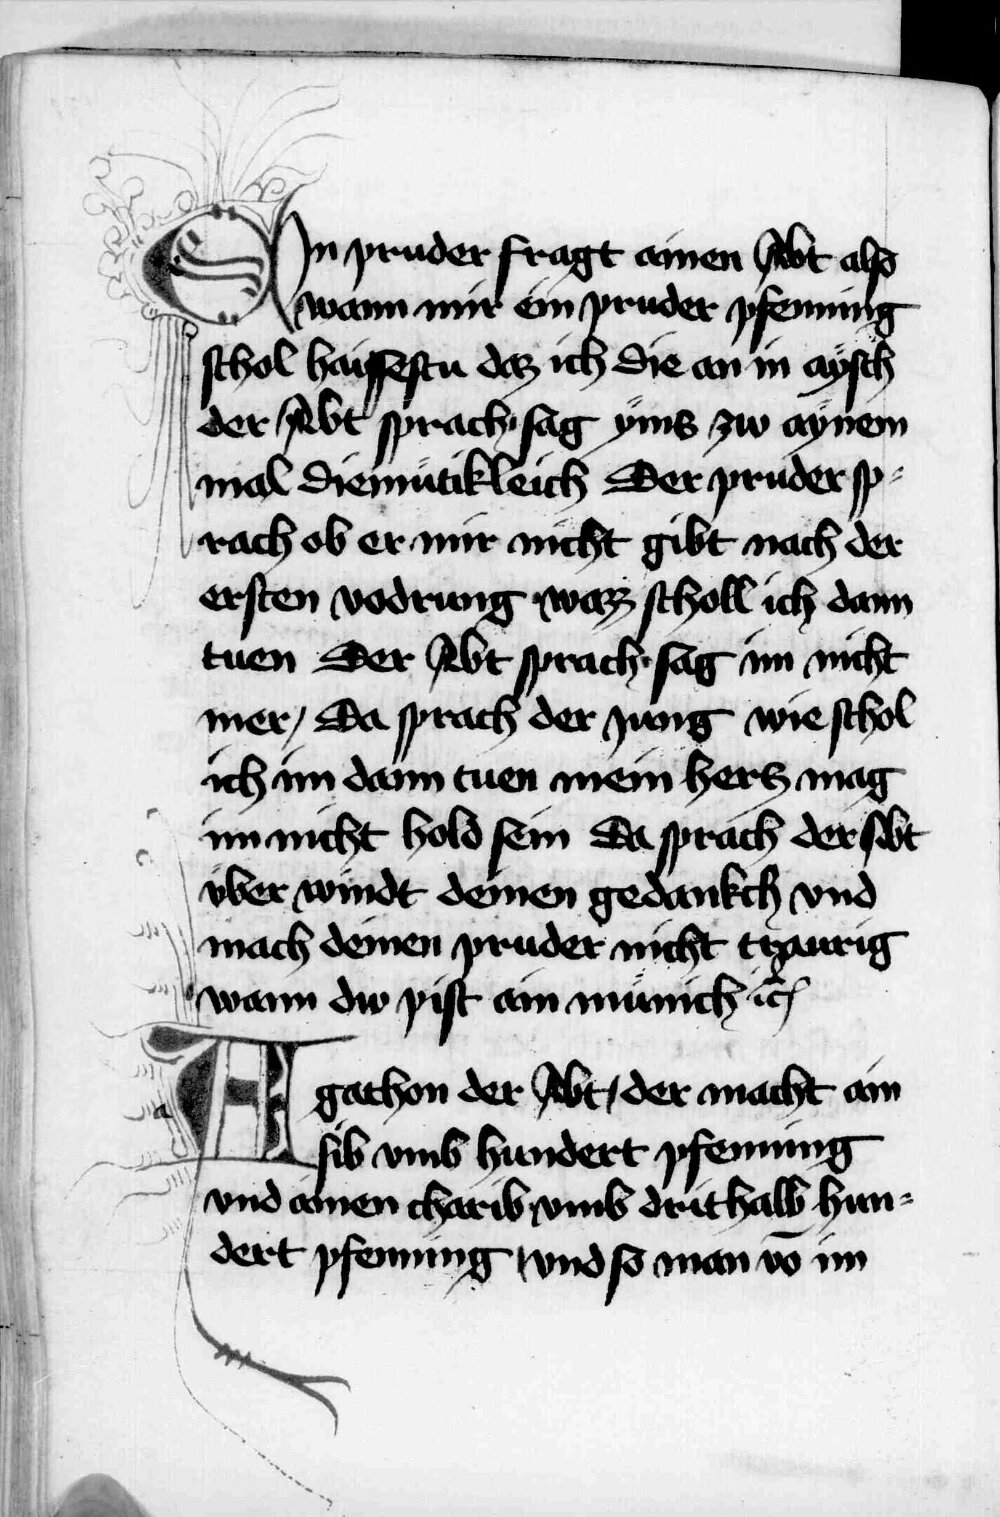 Ein pruder fragt ainen Abt also
wann mir ein pruder pfenning
schol haissestu daz ich die an in aÿsch
der Abt sprach · sag ÿms zw aÿnem
mal diemütikleich Der pruder sp⸗
rach ob er mir nicht gibt nach der
ersten vodrung · waz scholl ich dann
tuen Der Abt sprach · sag im nicht
mer / Da sprach der Jung wie schol
ich im dann tuen mein hertz mag
im nicht hold sein Da sprach der Abt
vber windt deinen gedankch vnd
mach deinen pruder nicht traurig
wann dw pist ain münich
Agathon der Abt / der macht ain
sib vmb hundert pfenning
vnd ainen charib vmb drithalb hun⸗
dert pfenning vnd so man vō im